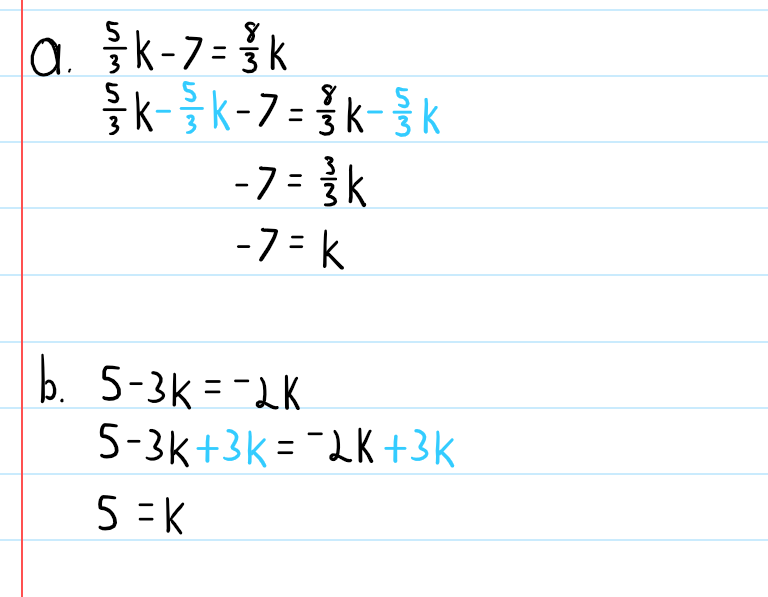 a. 5/3 k - 7 = 8/3 k
5/3 k - 5/3 k - 7 = 8/3 k - 5/3 k
-7 = 3/3 k
-7 = k
b. 5 - 3k = -2k
5 - 3k + 3k = -2k + 3k
5 = k